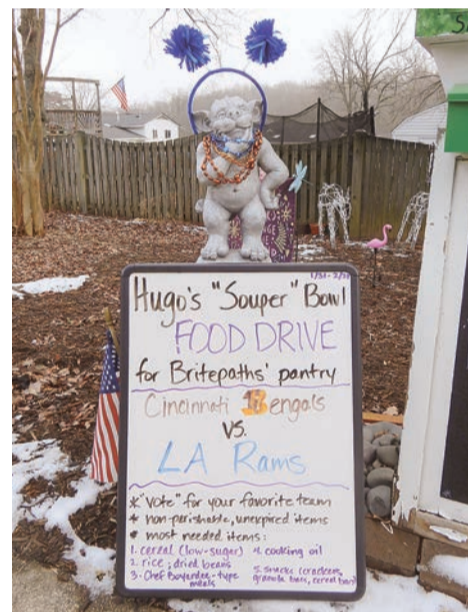 1/31 - 2/21
Hugo's "Souper" Bowl
FOOD DRIVE
for Britepaths' pantry
Cincinnati Bengals
VS.
LA Rams
* "vote" for your favorite team
* non-perishable, unexpired items
* most needed items:
1. cereal (low-sugar)
2. rice; dried beans
3. Chef Boyardee-type meals
4. cooking oil
5. snacks (crackers, granola bars, cereal bars)